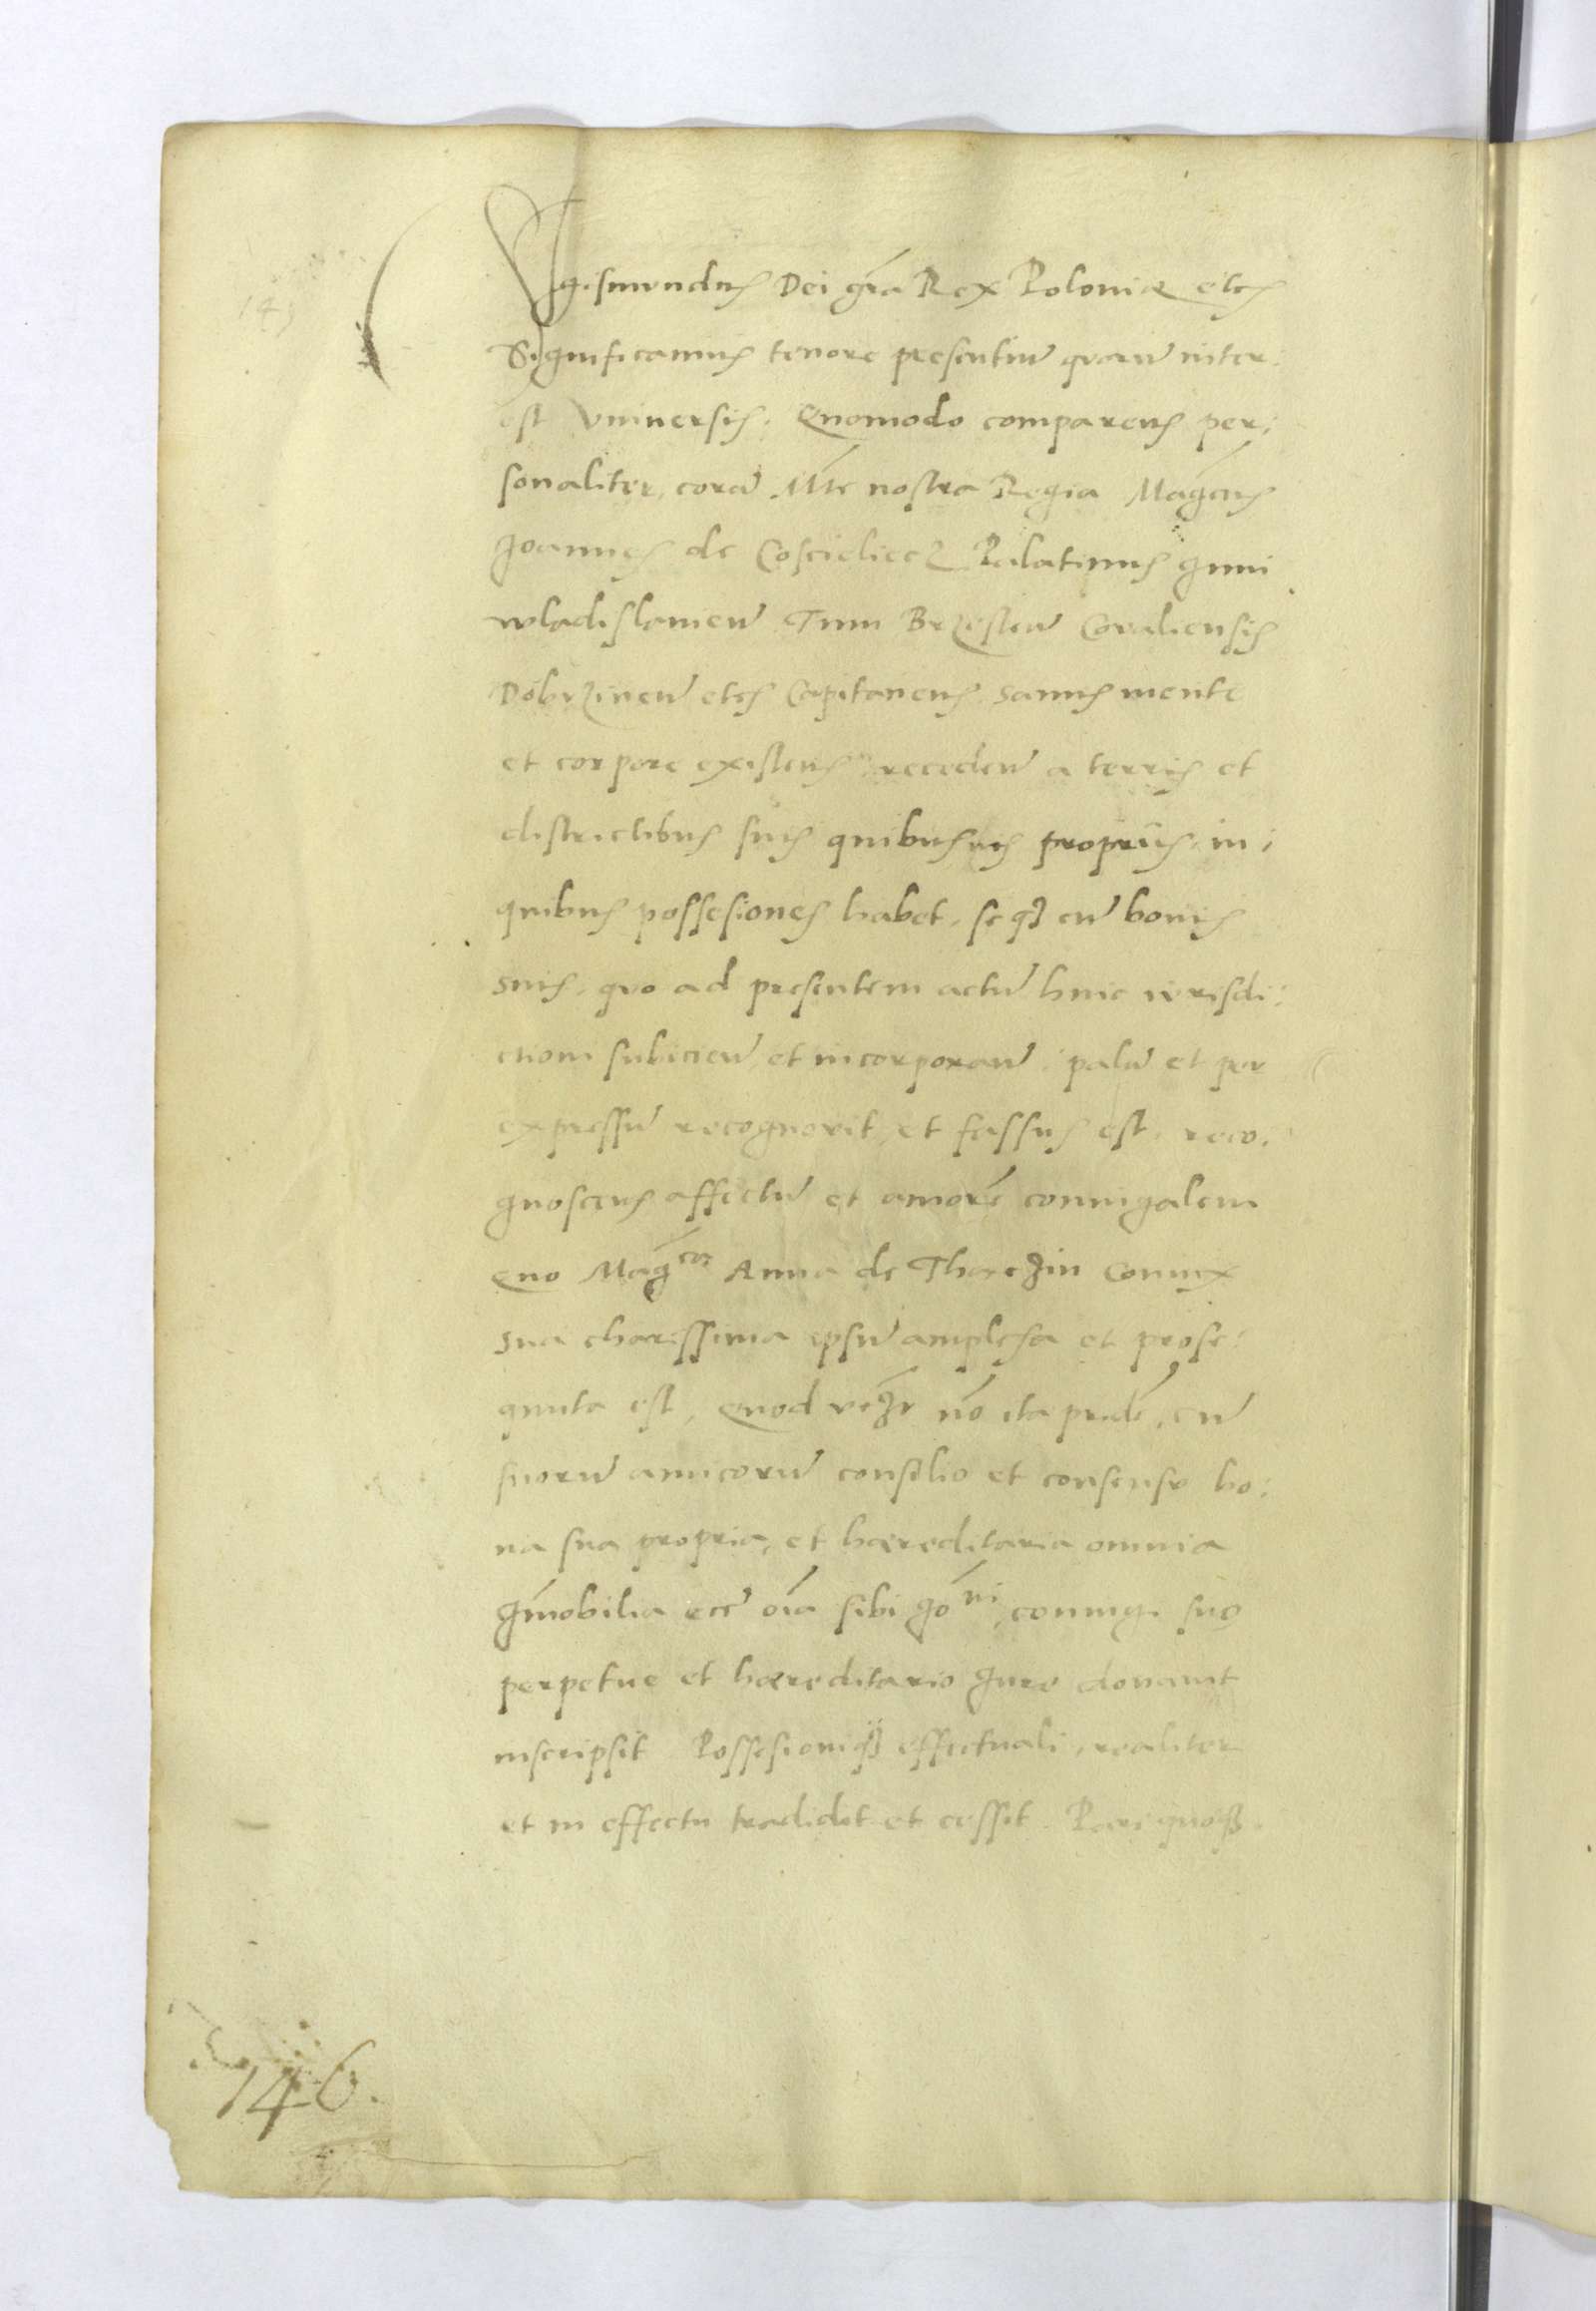 Sigismundus Dei gr̃a Rex Poloniæ etc̃
Significamus tenore presentiũ quorũ inter:
est Vniuersis. Quomodo comparens per:
sonaliter, corã Mte nostra Regia Mag̃cus
Joannes de Coscieliecz Palatinus Juni
wladislauieñ Tum Brzesteñ Coualiensis
Dobrzineñ etc̃ Capitaneus sanus mente
et corpore existens recedeñ a terris et
districtibus suis quibusuis propriis, in:
quibus possesiones habet, se qz cũ bonis
suis, quo ad presentem actũ huic iurisdi:
ctioni subicieñ et incorporañ, palã et per
expressũ recognouit, et fassus est, reco:
gnoscens affectũ et amorẽ coniugalem
quo Mag̃ca Anna de Tharczin coniux
sua charissima ipsũ amplexa et prose:
quuta est, Quod nõ ita pridẽ, cũ
suorũ amicorũ consilio et consensu bo:
na sua propria, et hæreditaria omnia
Jm̃obilia oĩa sibi Jõni, coniugi suo
perpetue et hæreditario Jure donauit
inscripsit Possesioniqz effectuali, realiter
et in effectu tradidit et cessit. Pari quoqz
145
146.